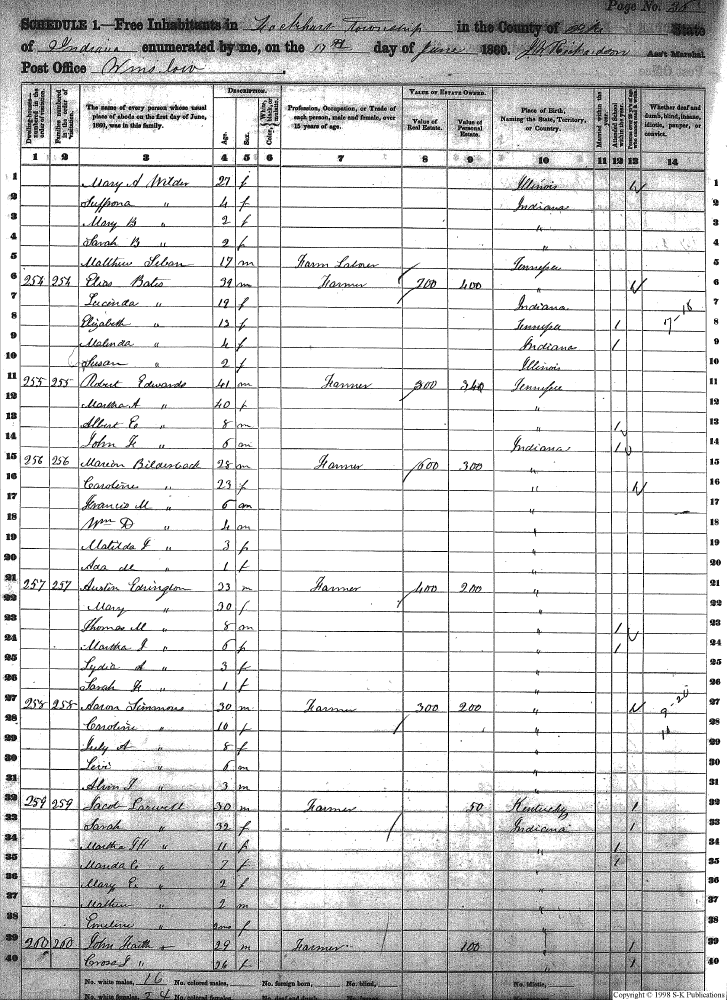 Page No.
SCHEDULE 1.—Free Inhabitants in Lockhart Township in the County of Pike State
of Indiana enumerated by me, on the 17th day of June 1860. Richardson Ass't Marshal.
Post Office Winslow
Dwelling-houses—numbered in the order of visitation.
Families numbered in the order of visitation.
The name of every person whose usual place of abode on the first day of June, 1860, was in this family.
DESCRIPTION.
Age.
Sex.
Color, White, black, or mulatto.
Profession, Occupation, or Trade of each person, male and female, over 15 years of age.
VALUE OF ESTATE OWNED.
Value of Real Estate.
Value of Personal Estate.
Place of Birth, Naming the State, Territory, or Country.
Married within the year.
Attended School within the year.
Whether deaf and dumb, blind, insane, idiotic, pauper, or convict.
1 2 3 4 5 6 7 8 9 10 11 12 13 14
1 Mary A Wilder 27 f Illinois 1
2 4 f Indiana 2
3 Mary B " 2 f " 3
4 Sarah B " 2 f " 4
5 Matthew 17 m Farm Laborer Tennessee 5
6 254 254 Elias Bates 39 m Farmer 700 400 " 6
7 Lucinda " 19 f Indiana 7
8 Elizabeth " 13 f Tennessee 1 7-18 8
9 Malinda " 4 f Indiana 1 9
10 Susan " 2 f Illinois 10
11 255 255 Robert Edwards 41 m Farmer 300 340 Tennessee 11
12 Martha A " 40 f " 12
13 Albert " 8 m " 1 13
14 John F " 6 m Indiana 1 14
15 256 256 Marion Bilderback 28 m Farmer 600 300 " 15
16 Caroline " 23 f " 16
17 Francis M " 6 m " 17
18 Wm D " 4 m " 18
19 Matilda F " 3 f " 19
20 Ada " 1 f " 20
21 257 257 Austin Edrington 33 m Farmer 400 200 " 21
22 Mary " 30 f " 22
23 Thomas M " 8 m " 1 23
24 Martha J " 6 f " 1 24
25 Lydia A " 3 f " 25
26 Sarah " 1 f " 26
27 258 258 Aaron Simmons 30 m Farmer 300 200 " 27
28 Caroline " 10 f " 28
29 July A " 8 f " 29
30 Levi " 6 m " 30
31 " 3 m " 31
32 259 259 Jacob 30 m Farmer 50 Kentucky 1 32
33 Sarah " 32 f Indiana 1 33
34 Martha " 11 f " 1 34
35 " 7 f " 1 35
36 Mary E " 2 f " 36
37 " 2 m " 37
38 Emeline " f " 38
39 260 260 John 29 m Farmer 100 " 1 39
40 " 26 f " 1 40
No. white males, 16 No. colored males, No. foreign born, No. blind, No. idiotic,
No. white females, 24 No. colored females,
Copyright © 1998 S-K Publications